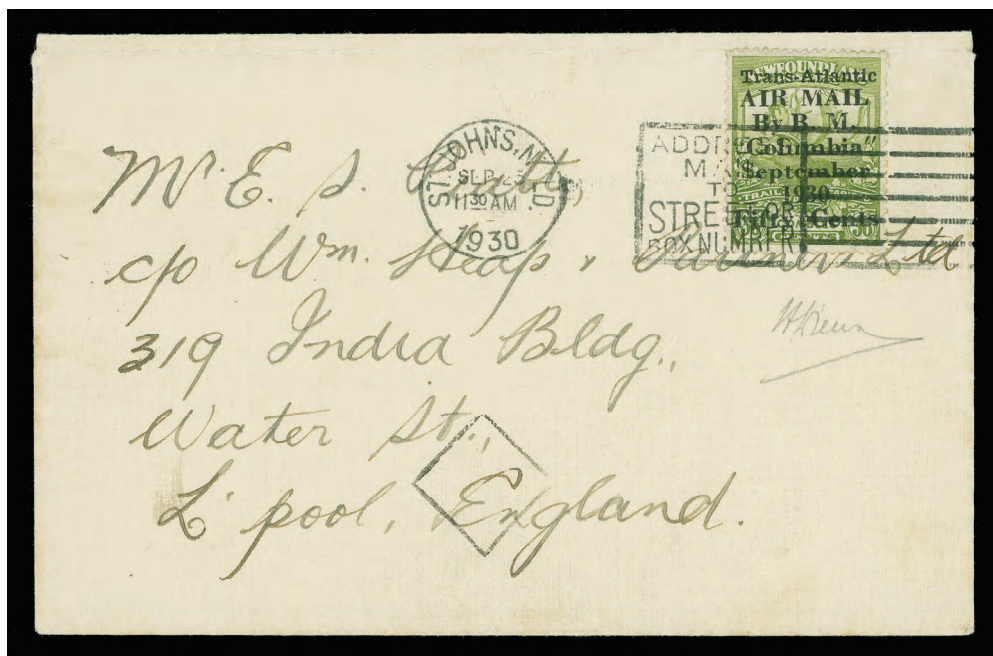 NEWFOUNDLAND
Trans-Atlantic
AIR MAIL
By B. M.
"Columbia"
September
1930
Fifty Cents
ST. JOHN'S, N'F'L'D.
SEP 25
11 30 AM
1930
ADDRESS
MAIL
TO
STREET OR
BOX NUMBER
Mr. E. S.
c/o Wm. Heap & Partners Ltd
319 India Bldg.,
Water St.,
L'pool, England.